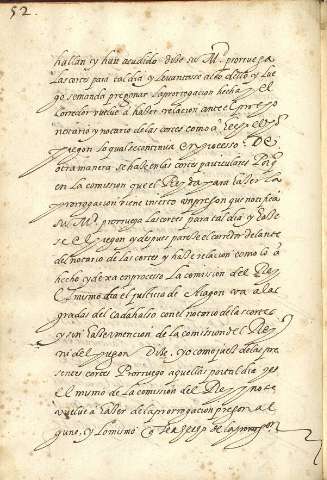 52.
hallan y han acudido dize su M.d prorruega
las cortes para tal dia y levantasse al ho desto y lue
go se manda pregonar la prorrogacion hecha y el
corredor vuelve a hazer relacion ante el
notario y notario de las cortes como a
pregon la qual se continua en processo. De
otra manera se haze en las cortes particulares
en la comission que el Rey da para hazer la
prorrogacion viene inserto un pregon que notifica
su M.d prorruega las cortes para tal dia y
se el pregon y despues parece el corredor delante
del notario de las cortes y haze relacion como lo a
hecho y dexa en processo la comission del Rey
El mismo dia el justicia de Aragon va a las
gradas del cadahalso con el notario de las cortes
y sin hazer mencion de la comission del Rey
ni del pregon Dize, yo como juez de las pre
sentes cortes Prorruego aquellas para tal dia
el mismo de la comission del Rey y no se
vuelve a hazer de la prorrogacion pregon al
guno, y lo mismo